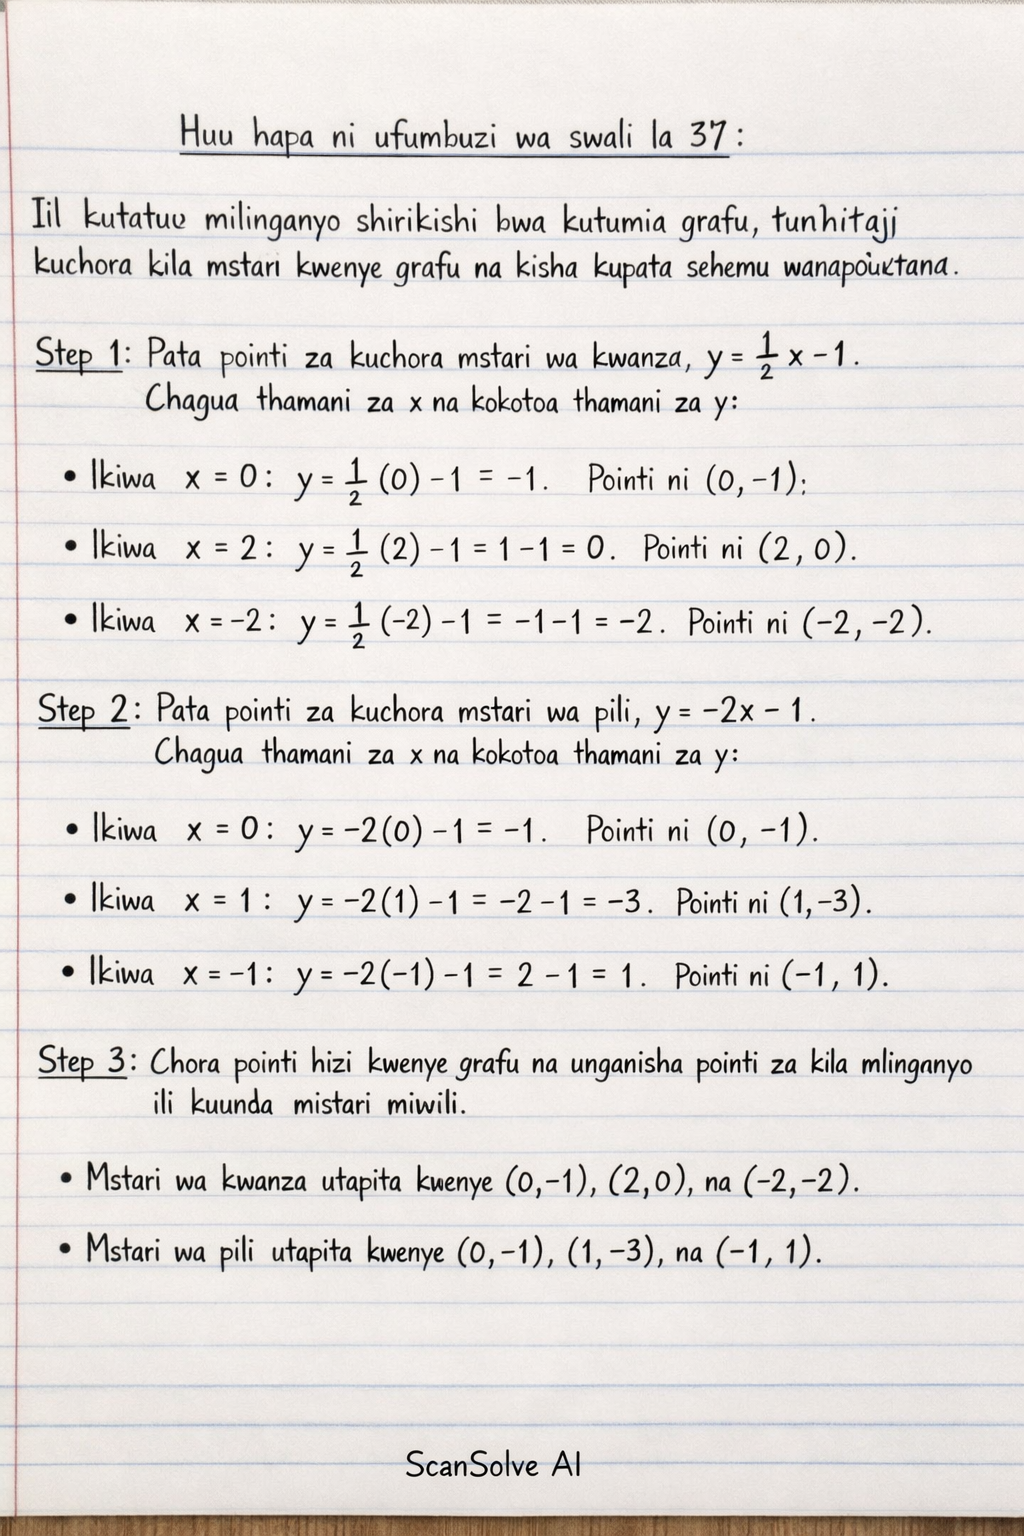 Huu hapa ni ufumbuzi wa swali la 37:
Iil kutatuu milinganyo shirikishi bwa kutumia grafu, tunhitajj
kuchora kila mstari kwenye grafu na kisha kupata sehemu
Step 1: Pata pointi za kuchora mstari wa kwanza, y = 1/2 x - 1.
Chagua thamani za x na kokotoa thamani za y:
• Ikiwa x = 0: y = 1/2 (0) - 1 = -1. Pointi ni (0, -1);
• Ikiwa x = 2: y = 1/2 (2) - 1 = 1 - 1 = 0. Pointi ni (2, 0).
• Ikiwa x = -2: y = 1/2 (-2) - 1 = -1 - 1 = -2. Pointi ni (-2, -2).
Step 2: Pata pointi za kuchora mstari wa pili, y = -2x - 1.
Chagua thamani za x na kokotoa thamani za y:
• Ikiwa x = 0: y = -2(0) - 1 = -1. Pointi ni (0, -1).
• Ikiwa x = 1: y = -2(1) - 1 = -2 - 1 = -3. Pointi ni (1, -3).
• Ikiwa x = -1: y = -2(-1) - 1 = 2 - 1 = 1. Pointi ni (-1, 1).
Step 3: Chora pointi hizi kwenye grafu na unganisha pointi za kila mlinganyo
ili kuunda mistari miwili.
• Mstari wa kwanza utapita kwenye (0,-1), (2,0), na (-2,-2).
• Mstari wa pili utapita kwenye (0,-1), (1,-3), na (-1, 1).
ScanSolve AI